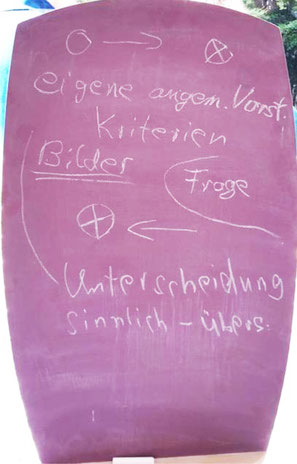 eigene angem. Vorst.
Kriterien
Bilder
Frage
Unterscheidung
sinnlich - übers.